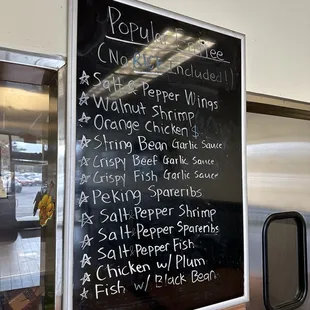 Popular Entree
(No Rice Included!)
Salt & Pepper Wings
Walnut Shrimp
Orange Chicken $
String Bean Garlic Sauce
Crispy Beef Garlic Sauce
Crispy Fish Garlic Sauce
Peking Spareribs
Salt Pepper Shrimp
Salt Pepper Spareribs
Salt Pepper Fish
Chicken w/ Plum
Fish w/ Black Bean